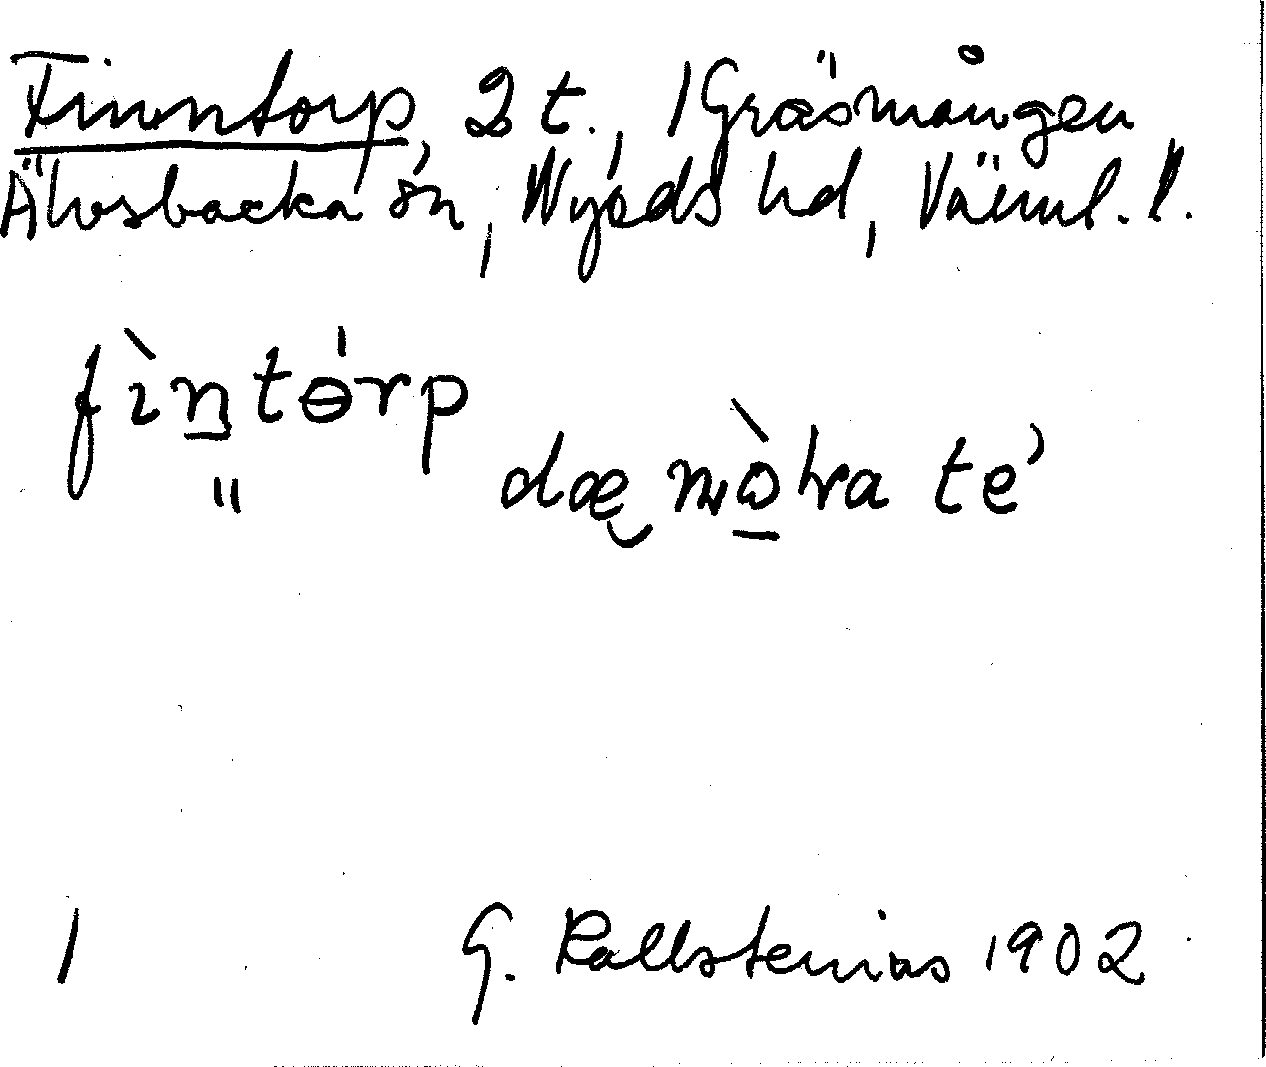 Finntorp, 2 t., 1 Gräsmången
Älvsbacka sn, Nyeds hd, Värml. l.
fìn̠tɵ́rp
" dæ nò̠ḷa te'
1 G. Kallstenius 1902